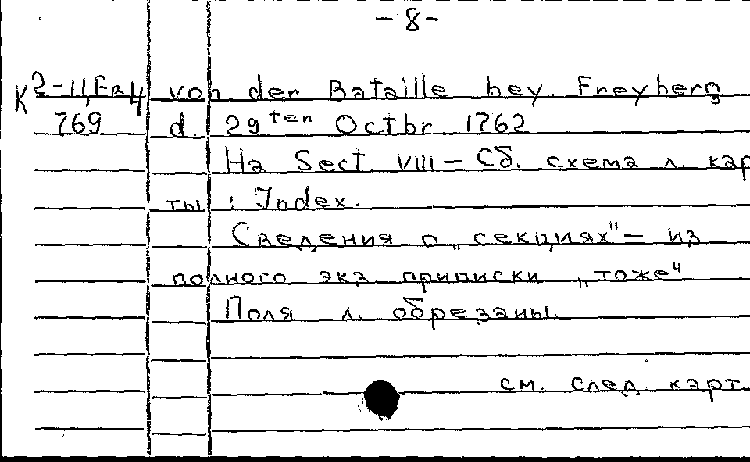 - 8 -
К 2-II,Ев 4 von der Bataille bey. Freyberg
769 d. 29ten Octbr 1762
На Sect VIII - Сб. схема л. кар
ты : Index.
Сведения о „секциях" - из
полного экз приписки „тоже"
Поля л. обрезаны.
см. след. карт.